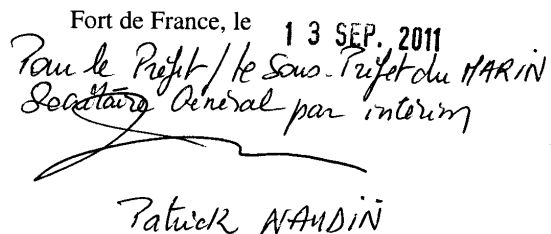 Fort de France, le 13 SEP. 2011
Pour le Préfet / le Sous-Préfet du MARIN
Secrétaire Général par intérim
Patrick NAUDIN